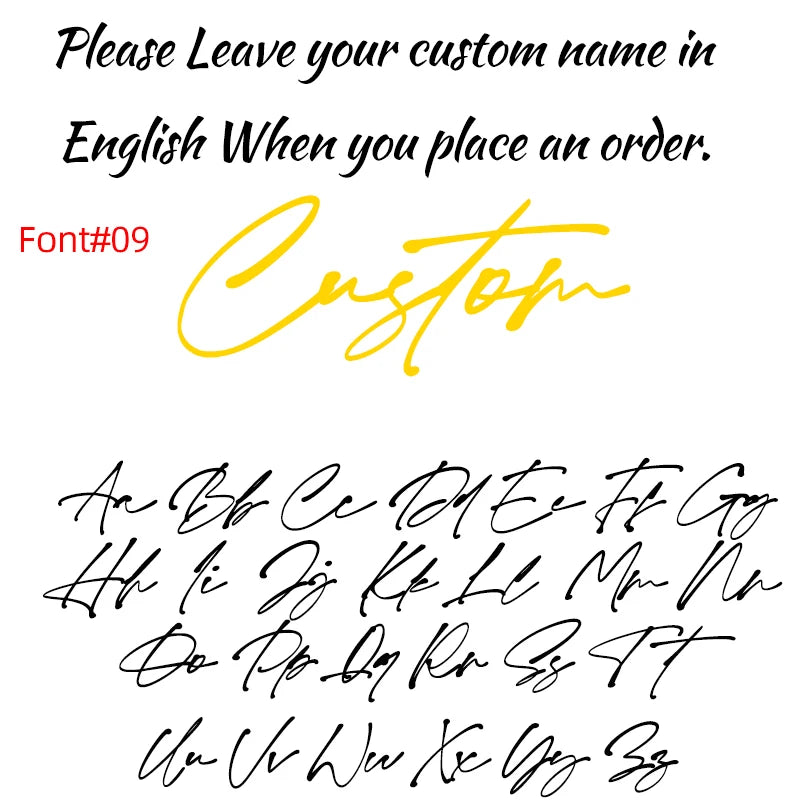 Please Leave your custom name in
English When you place an order.
Font#09
Custom
Aa Bb Cc Dd Ee Ff Gg
Hh Ii Jj Kk Ll Mm Nn
Oo Pp Qq Rr Ss Tt
Uu Vv Ww Xx Yy Zz